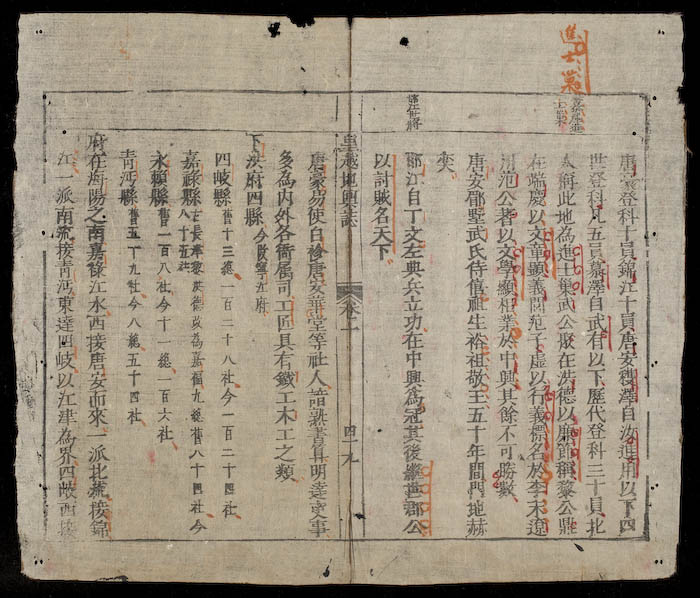 進士巢
唐豪登科十員錦江十員唐安穫澤自汝進用以下四
世登科凡五員慕澤自武有以下歷代登科三十員北
人稱此地為進士巢武公聚在洪德以廉節稱黎公鼎
在端慶以文章顯義閭范子虛以行義標名於李末遼
范公著以文學顯相業於中興其餘不可勝數
唐安鄲墅武氏侍僖祖生裕祖敬王五十年間門地赫
奕
鄭江自丁文左典兵立功在中興為冠其後繼世郡公
以討賊名天下
皇越地輿誌
卷二
四十九
唐豪易使白袗唐安華堂等社人諳熟書算明達吏事
多為內外各衙属司工匠具有鐵工木工之類
下洪府四縣
今改寧江府
四岐縣
舊十三總一百二十八社今一百二十四社
嘉祿縣
古長津黎洪德改為嘉福九總舊八十四社今
八十五社
永賴縣
舊一百八社今十一總一百六社
青沔縣
舊五十九社今八總五十四社
府在海陽之南嘉祿江水西接唐安而來一派北流接錦
江一派南流接青沔東達四岐以江津為界四岐西接